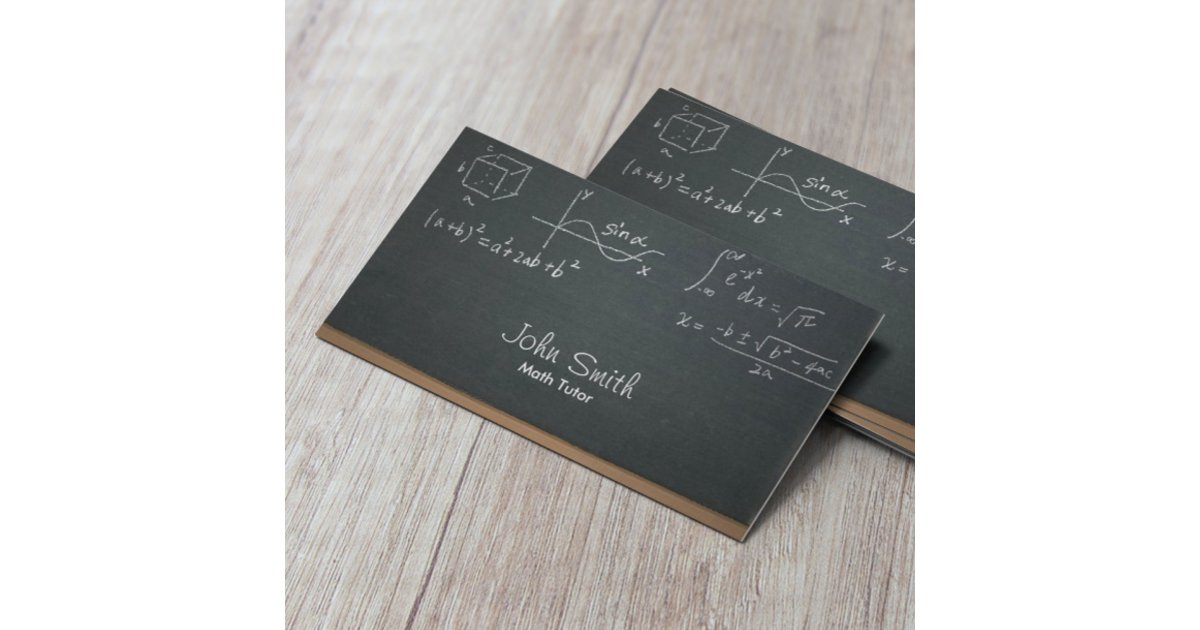 c
b
a
(a+b)²=a²+2ab+b²
y
sin α
x
∫₋∞^∞ e^(-x²) dx = √π
x = (-b ± √(b² - 4ac)) / 2a
John Smith
Math Tutor
c
b
a
(a+b)²=a²+2ab+b²
y
sin α
x
∫₋∞
x =